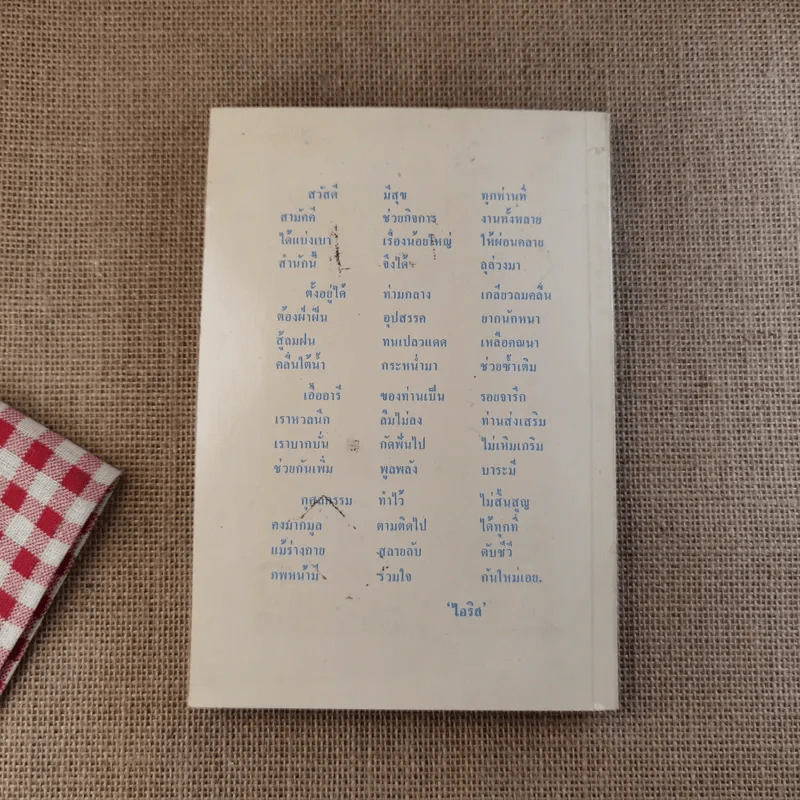 สวัสดี มีสุข ทุกท่านที่
สามัคคี ช่วยกิจการ งานทั้งหลาย
ได้แบ่งเบา เรื่องน้อยใหญ่ ให้ผ่อนคลาย
สำนักนี้ จึงได้ ลุล่วงมา
ตั้งอยู่ได้ ท่ามกลาง เกลียวลมคลื่น
ต้องฝ่าฝืน อุปสรรค ยากนักหนา
สู้ลมฝน ทนเปลวแดด เหลือคณนา
คลื่นใต้น้ำ กระหน่ำมา ช่วยซ้ำเติม
เอื้ออารี ของท่านเป็น รอยจารึก
เราหวลนึก ลืมไม่ลง ท่านส่งเสริม
เราบากบั่น กัดฟันไป ไม่เหิมเกริม
ช่วยกันเพิ่ม พูลพลัง บาระมี
กุศลกรรม ทำไว้ ไม่สิ้นสูญ
คงมากมูล ตามติดไป ได้ทุกที่
แม้ร่างกาย สลายลับ ดับชีวี
ภพหน้ามี ร่วมใจ กันใหม่เอย.
'ไอริส'